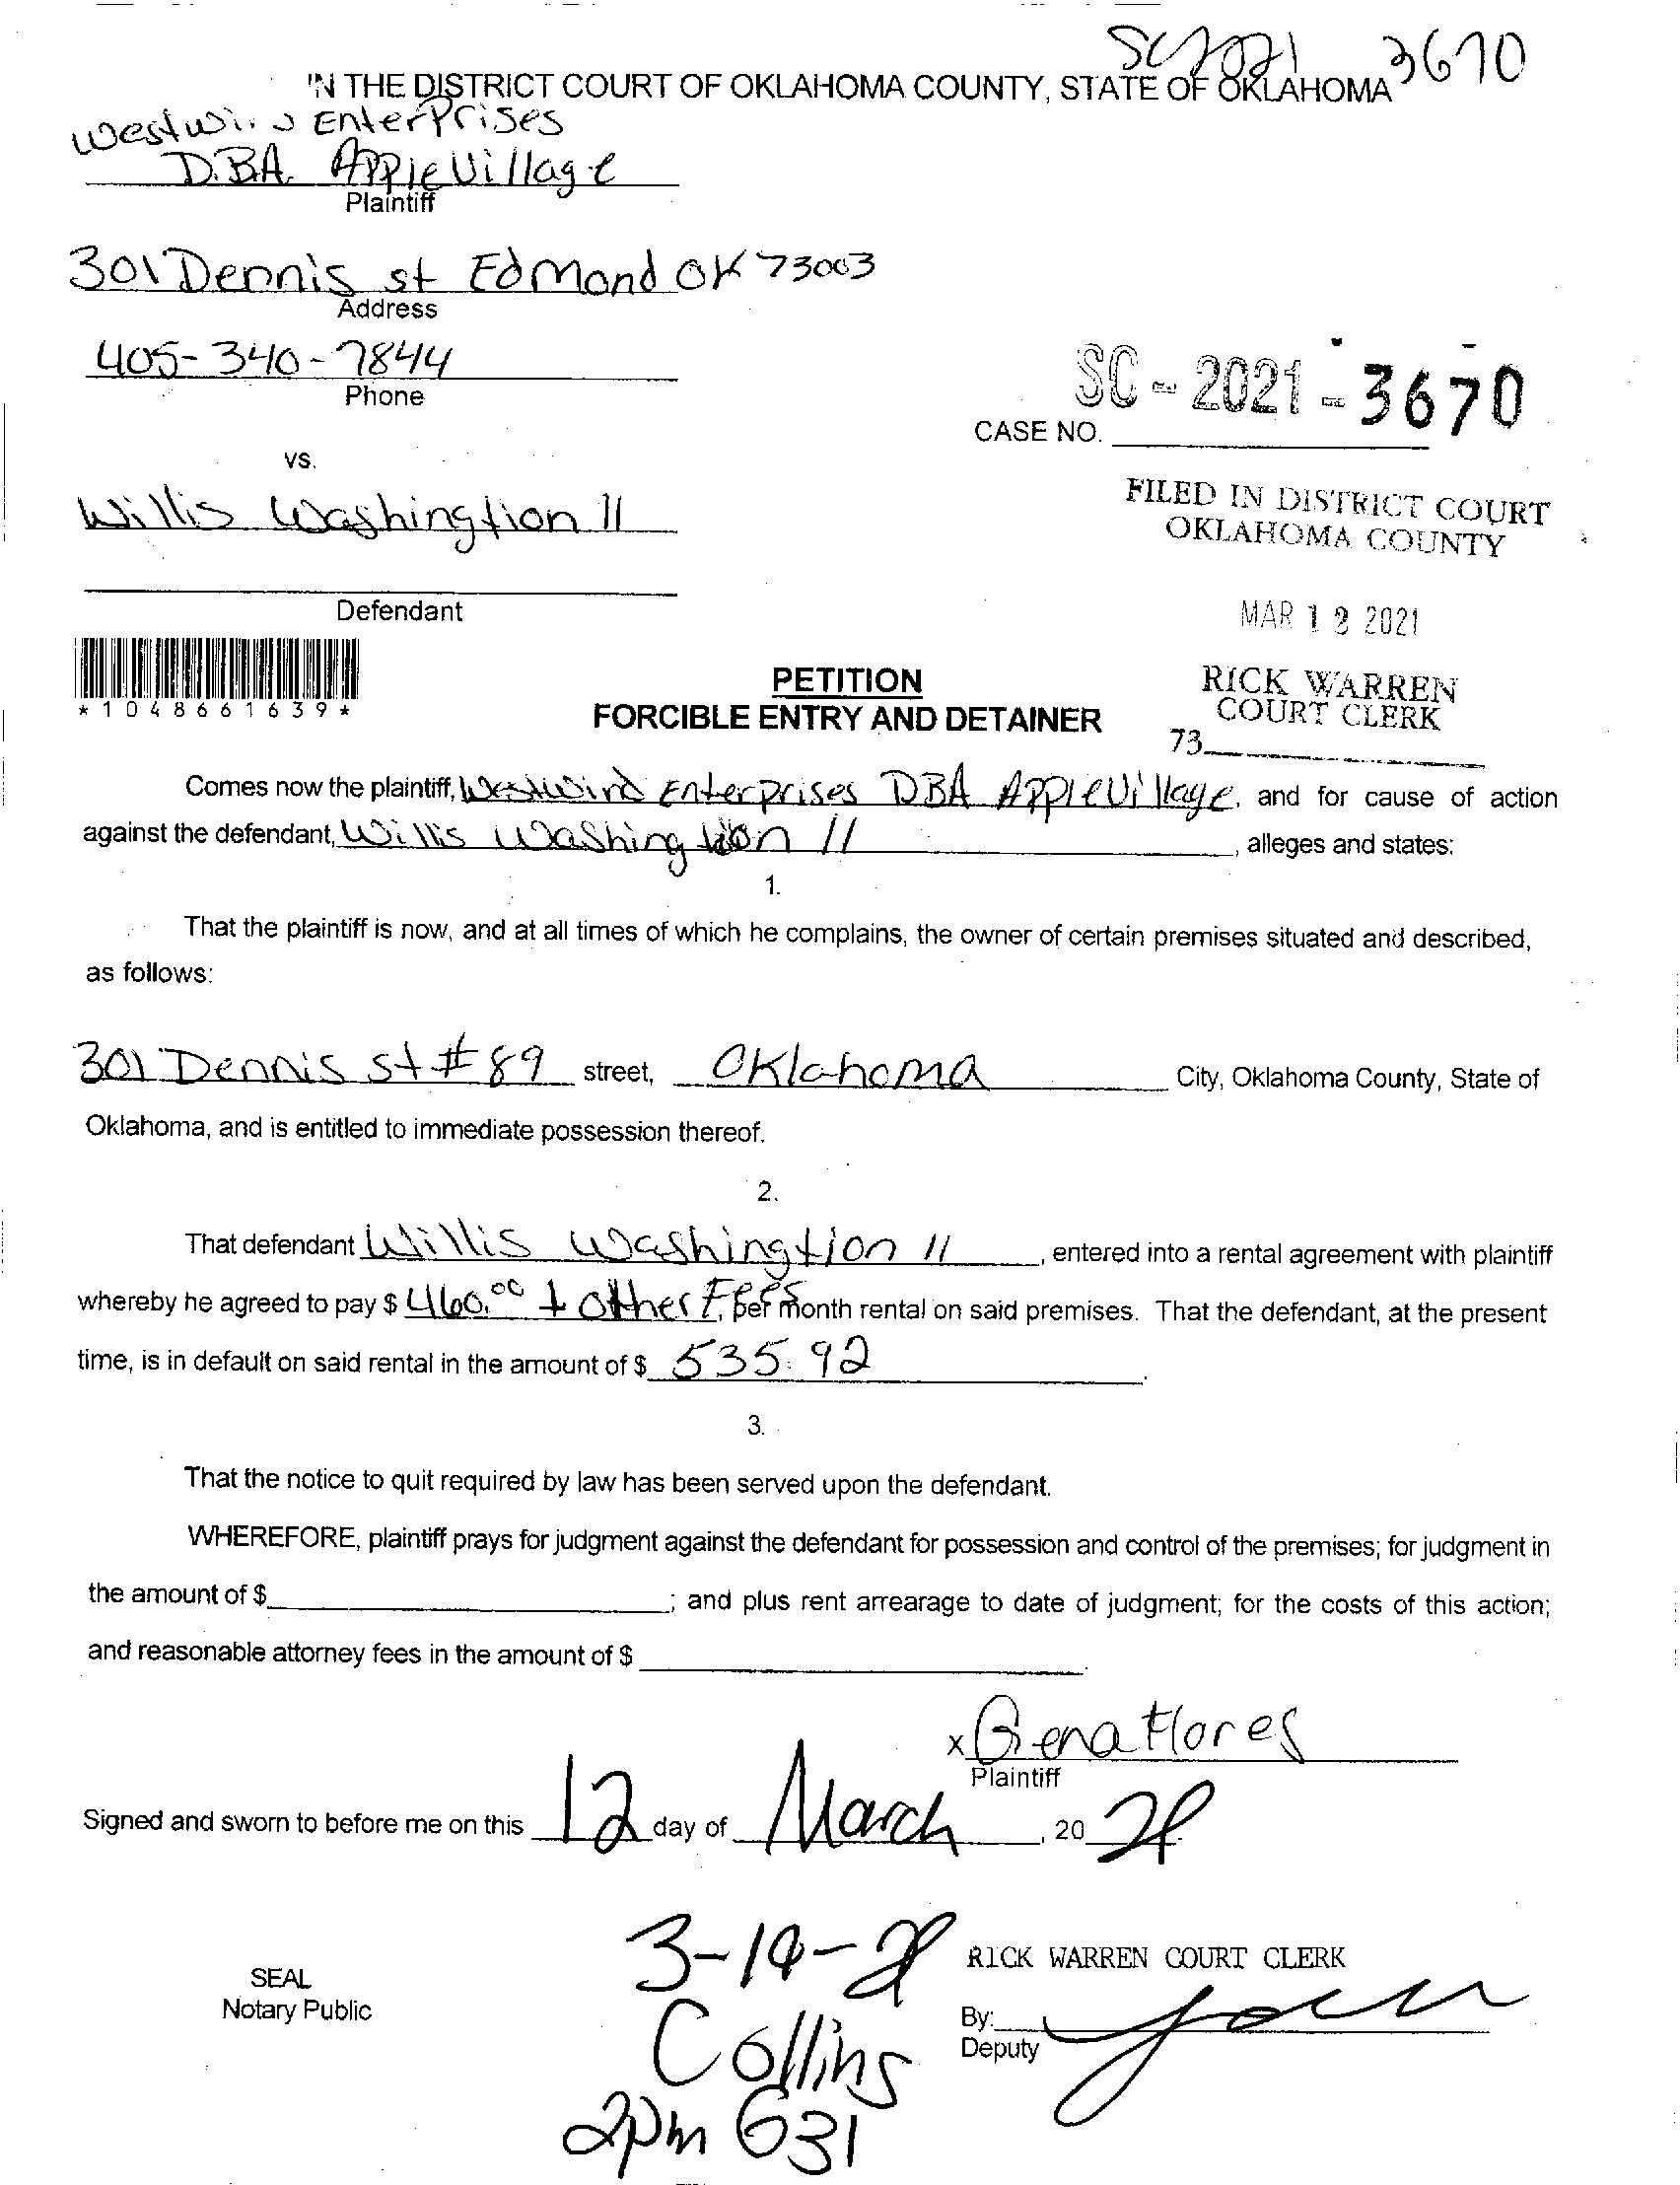 SC2021 3670
IN THE DISTRICT COURT OF OKLAHOMA COUNTY, STATE OF OKLAHOMA
Westwind Enterprises
D.B.A. AppleVillage
Plaintiff
301 Dennis st Edmond OK 73003
Address
405-340-7844
Phone
SC - 2021 - 3670
CASE NO.
vs.
Willis Washingtion II
FILED IN DISTRICT COURT
OKLAHOMA COUNTY
Defendant
MAR 12 2021
*1048661639*
PETITION
FORCIBLE ENTRY AND DETAINER
RICK WARREN
COURT CLERK
73
Comes now the plaintiff, Westwind Enterprises DBA AppleVillage, and for cause of action
against the defendant, Willis Washingtion II, alleges and states:
1.
That the plaintiff is now, and at all times of which he complains, the owner of certain premises situated and described,
as follows:
301 Dennis st #89 street, Oklahoma City, Oklahoma County, State of
Oklahoma, and is entitled to immediate possession thereof.
2.
That defendant Willis Washingtion II, entered into a rental agreement with plaintiff
whereby he agreed to pay $ 460.00 + other Fees, per month rental on said premises. That the defendant, at the present
time, is in default on said rental in the amount of $ 535.92.
3.
That the notice to quit required by law has been served upon the defendant.
WHEREFORE, plaintiff prays for judgment against the defendant for possession and control of the premises; for judgment in
the amount of $ ; and plus rent arrearage to date of judgment; for the costs of this action;
and reasonable attorney fees in the amount of $ .
x Gena Flores
Plaintiff
Signed and sworn to before me on this 12 day of March, 2021.
RICK WARREN COURT CLERK
SEAL
Notary Public
By:
Deputy
Collins
2pm 631